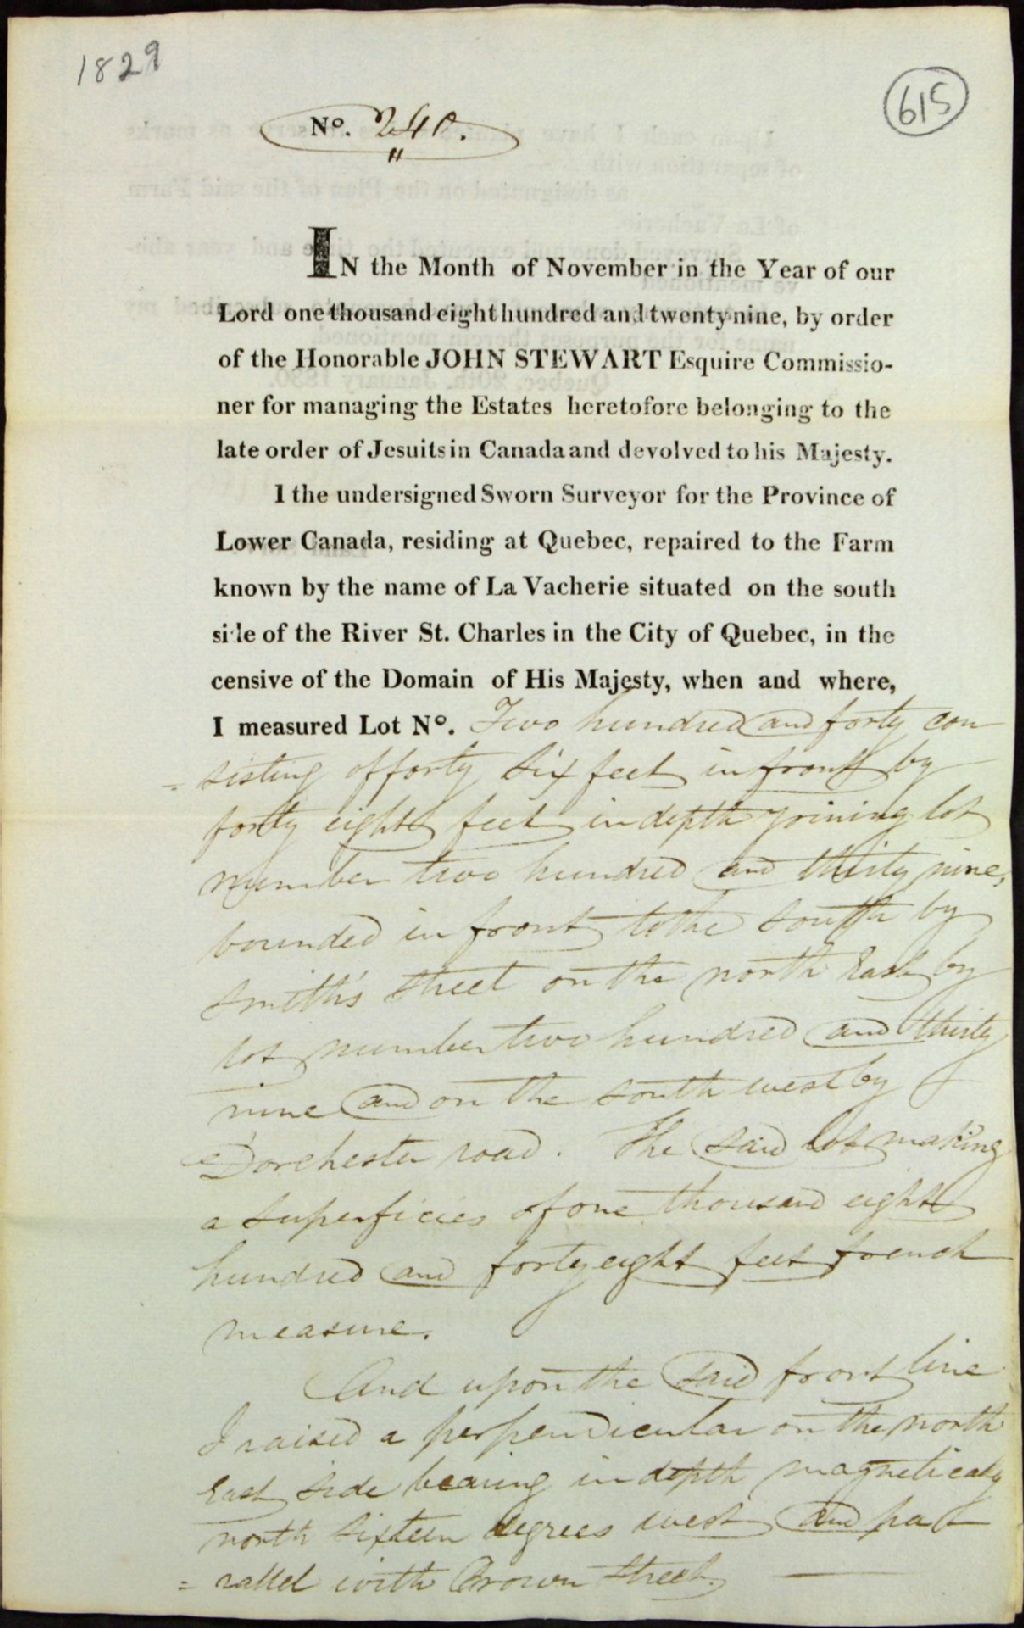 1829
615
No. 240.
IN the Month of November in the Year of our
Lord one thousand eight hundred and twenty nine, by order
of the Honorable JOHN STEWART Esquire Commissio-
ner for managing the Estates heretofore belonging to the
late order of Jesuits in Canada and devolved to his Majesty.
I the undersigned Sworn Surveyor for the Province of
Lower Canada, residing at Quebec, repaired to the Farm
known by the name of La Vacherie situated on the south
side of the River St. Charles in the City of Quebec, in the
censive of the Domain of His Majesty, when and where,
I measured Lot No. Two hundred and forty con
= sisting of forty six feet in front by
forty eight feet in depth joining lot
number two hundred and thirty nine,
bounded in front to the south by
Smith's street on the north East by
lot number two hundred and thirty
nine and on the south west by
Dorchester road. The said lot making
a superficies of one thousand eight
hundred and forty eight feet french
measure.
And upon the said front line
I raised a perpendicular on the north
East side bearing in depth magneticaly
north sixteen degrees west and pa
= rallel with Crown Street.